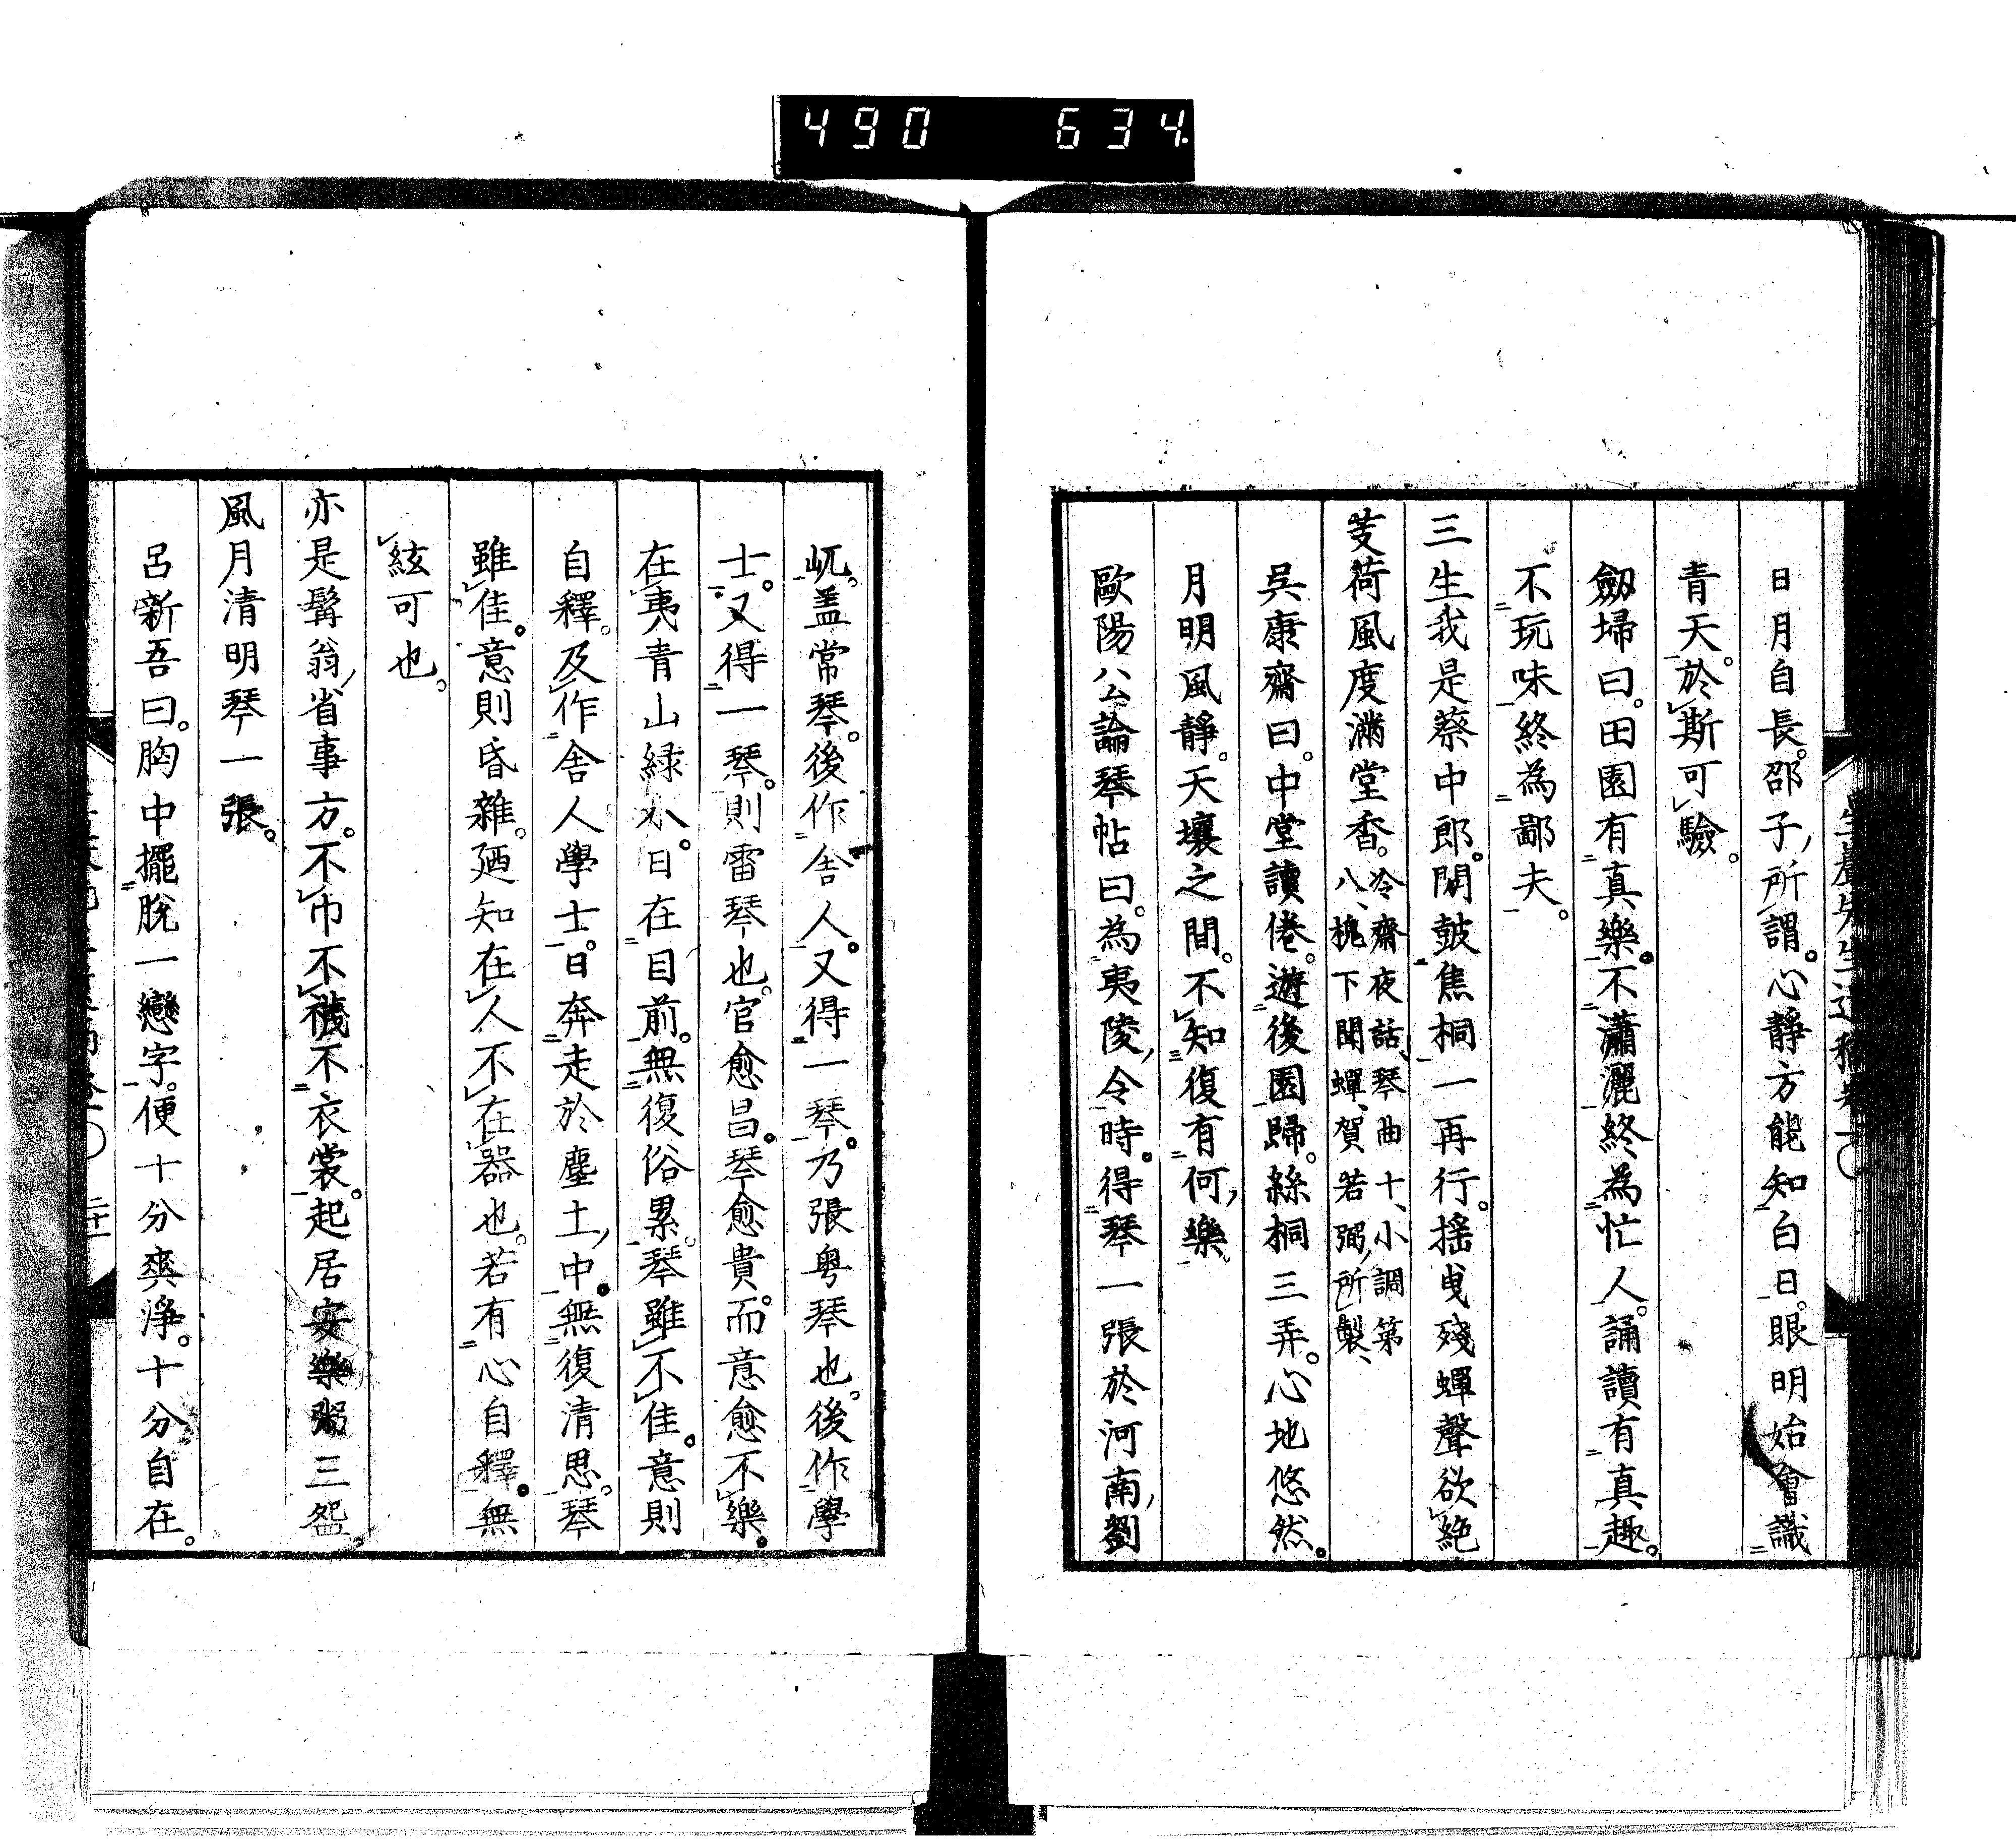 490 634
日月自長。邵子所謂。心靜方能知白日。眼明始會識
青天。於斯可驗。
劔埽曰。田園有真樂。不瀟灑終為忙人。誦讀有真趣。
不玩味終為鄙夫。
三生我是蔡中郎。閒鼓焦桐一再行。搖曳殘蟬聲欲絶
芰荷風度滿堂香。冷齋夜話、琴曲十、小調第
八、槐下聞蟬、賀若弼所製、
吳康齋曰。中堂讀倦。遊後園歸。絲桐三弄。心地悠然。
月明風靜。天壤之間。不知復有何樂。
歐陽公論琴帖曰。為夷陵令時。得琴一張於河南劉
屼。盖常琴。後作舍人。又得一琴。乃張粤琴也。後作學
士。又得一琴。則雷琴也。官愈昌。琴愈貴。而意愈不樂。
在夷青山緑水。日在目前。無復俗累。琴雖不佳。意則
自釋。及作舍人學士。日奔走於塵土中。無復清思。琴
雖佳。意則昏雜。廼知在人不在器也。若有心自釋。無
絃可也。
亦是髯翁省事方。不巾不襪不衣裳。起居安樂粥三盌
風月清明琴一張。
呂新吾曰。胸中擺脫一戀字。便十分爽淨。十分自在。